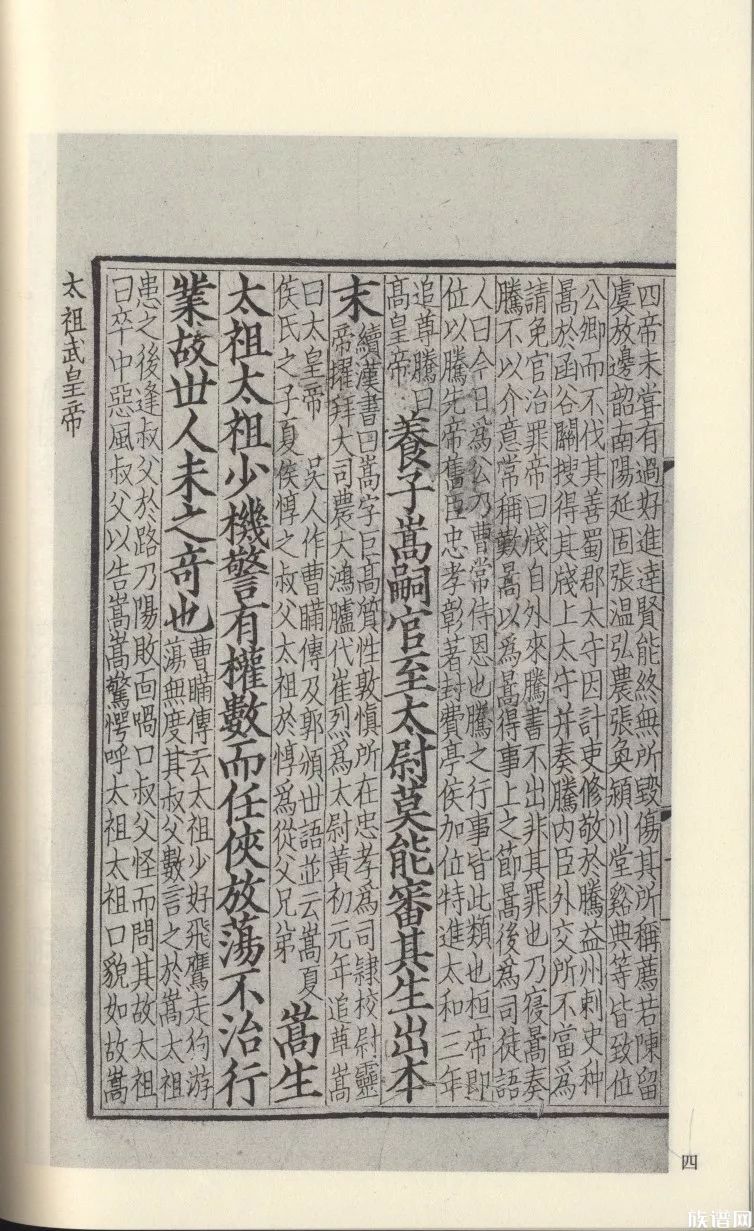 四帝未嘗有過好進達賢能終無所毀傷其所稱薦若陳留
虞放邊韶南陽延固張温弘農張奐潁川堂谿典等皆致位
公卿而不伐其善蜀郡太守因計吏修敬於騰益州刺史种
暠於函谷關搜得其牋上太守并奏騰内臣外交所不當爲
請免官治罪帝曰牋自外來騰書不出非其罪也乃寝暠奏
騰不以介意常稱歎暠以爲暠得事上之節暠後爲司徒語
人曰今日爲公乃曹常侍恩也騰之行事皆此類也桓帝即
位以騰先帝舊臣忠孝彰著封費亭侯加位特進太和三年
追尊騰曰
高皇帝
養子嵩嗣官至太尉莫能審其生出本
末
續漢書曰嵩字巨高質性敦慎所在忠孝爲司隷校尉靈
帝擢拜大司農大鴻臚代崔烈爲太尉黄初元年追尊嵩
曰太皇帝
吴人作曹瞞傳及郭頒世語並云嵩夏
侯氏之子夏侯惇之叔父太祖於惇爲從父兄弟
嵩生
太祖太祖少機警有權數而任俠放蕩不治行
業故世人未之奇也
曹瞞傳云太祖少好飛鷹走狗游
蕩無度其叔父數言之於嵩太祖
患之後逢叔父於路乃陽敗面喎口叔父怪而問其故太祖
曰卒中惡風叔父以告嵩嵩驚愕呼太祖太祖口貌如故嵩
太祖武皇帝
四
族谱网